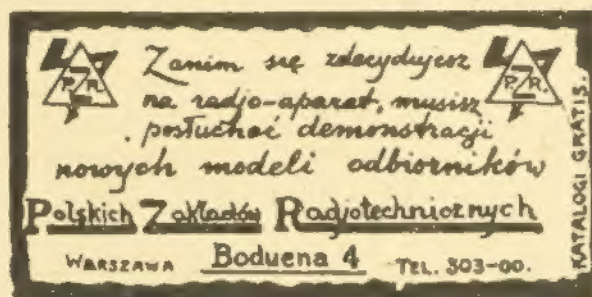 Zanim się zdecydujesz
na radjo-aparat, musisz
posłuchać demonstracji
nowych modeli odbiorników
Polskich Zakładów Radjotechnicznych
WARSZAWA Boduena 4 TEL. 503-00.
KATALOGI GRATIS.
P.Z.R.
P.Z.R.